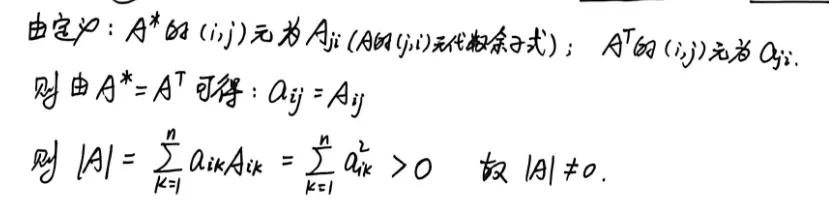 由定义: A*的(i,j)元为A_{ji}(A的(j,i)元代数余子式); A^T的(i,j)元为a_{ji}.
则由A*=A^T可得: a_{ij}=A_{ij}
则|A|=\sum_{k=1}^{n} a_{ik}A_{ik}=\sum_{k=1}^{n} a_{ik}^2>0 故|A|≠0.